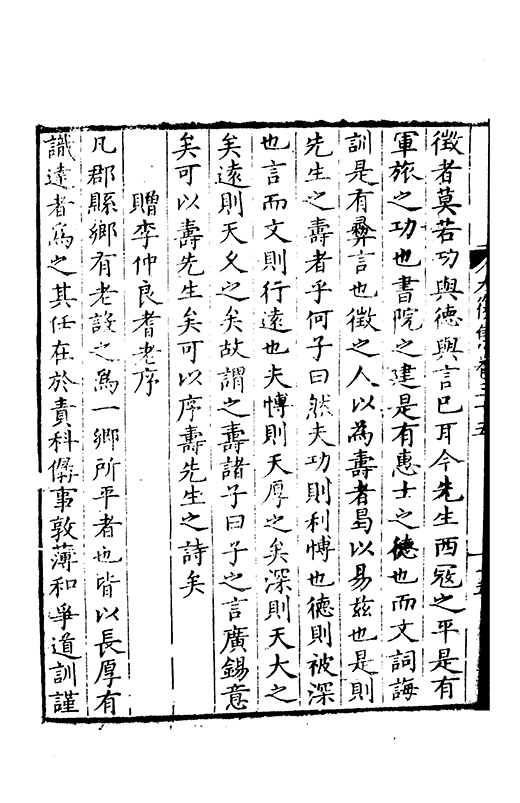 徵者莫若功與德與言已耳今先生西寇之平是有
軍旅之功也書院之建是有惠士之德也而文詞誨
訓是有彜言也徵之人以為壽者曷以易玆也是則
先生之壽者乎何子曰然夫功則利愽也德則被深
也言而文則行遠也夫愽則天厚之矣深則天大之
矣遠則天久之矣故謂之壽諸子曰子之言廣錫意
矣可以壽先生矣可以序壽先生之詩矣
贈李仲良耆老序
凡郡縣鄉有老設之為一鄉所平者也皆以長厚有
識達者為之其任在於責科僝事敦薄和爭道訓謹